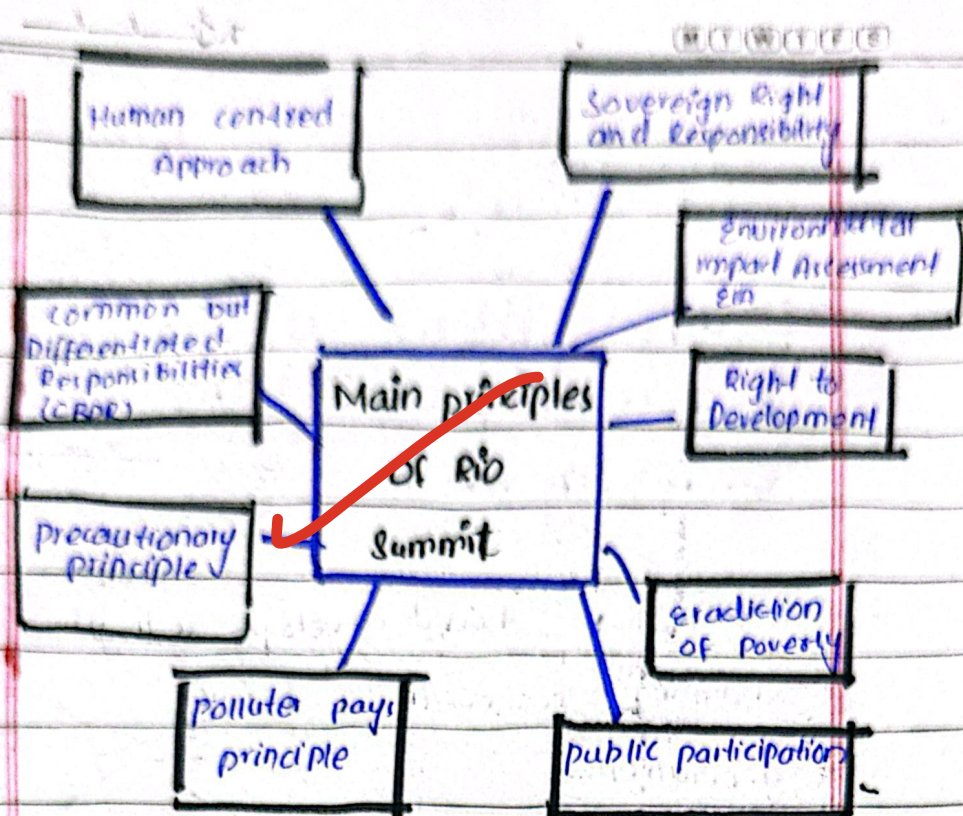 M T W T F S
Human centred
Approach
Sovereign Right
and Responsibility
Environmental
Impact Assessment
EIA
Common but
Differentiated
Responsibilities
(CBDR)
Main principles
Of Rio
Summit
Right to
Development
Precautionary
principle
Eradiction
of poverty
polluter pays
principle
public participation